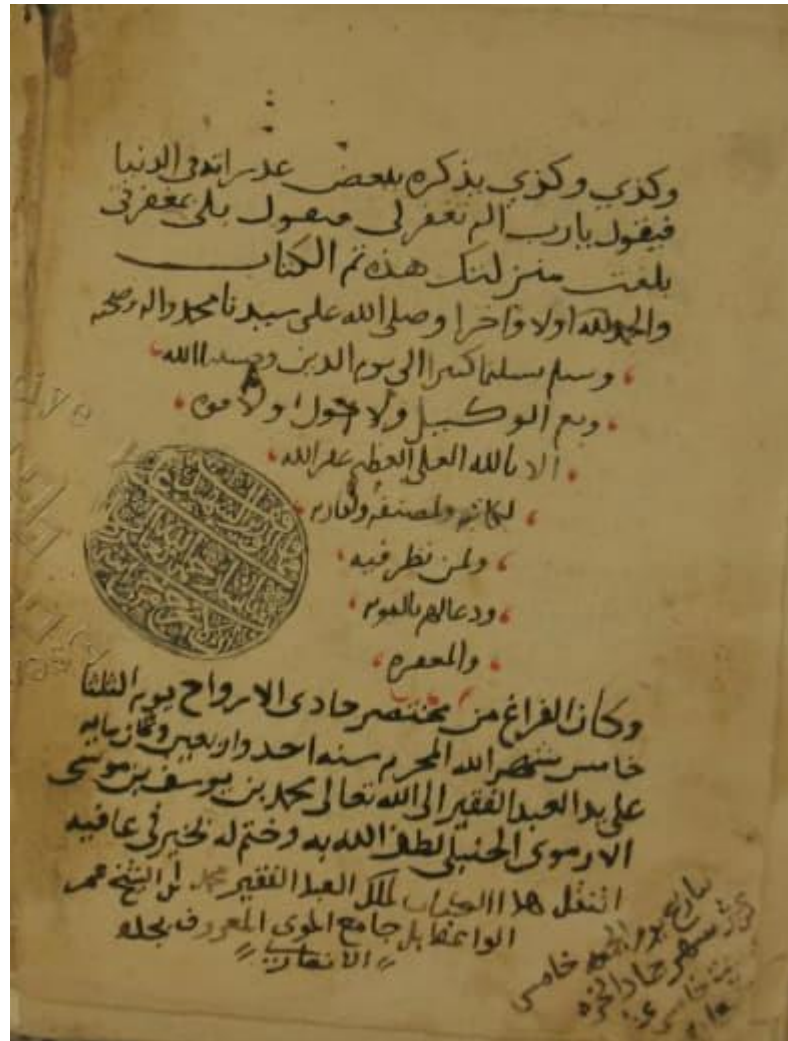 وكذي وكذي يذكره ببعض غدراته في الدنيا
فيقول يا رب الم تغفر لي فيقول بلى بمغفرتي
بلغت منزلتك هذه تم الكتاب
والحمد لله اولا واخرا وصلى الله على سيدنا محمد واله وصحبه
وسلم تسليما كثيرا الى يوم الدين وحسبنا الله
ونعم الوكيل ولا حول ولا قوه
الا بالله العلي العظيم غفر الله
لكاتبه ولمصنفه ولقاريه
ولمن نظر فيه
ودعا لهم بالتوبه
والمغفره
وكان الفراغ من مختصر حادى الارواح يوم الثلثا
خامس شهر الله المحرم سنه احد واربعين وثمان مايه
على يد العبد الفقير الى الله تعالى محمد بن يوسف بن موسى
الارموى الحنبلي لطف الله به وختم له بخير في عافيه
انتقل هذا الكتاب لملك العبد الفقير محمد ابن الشيخ عمر
الواعظ جامع المعروف
خامس
شهر